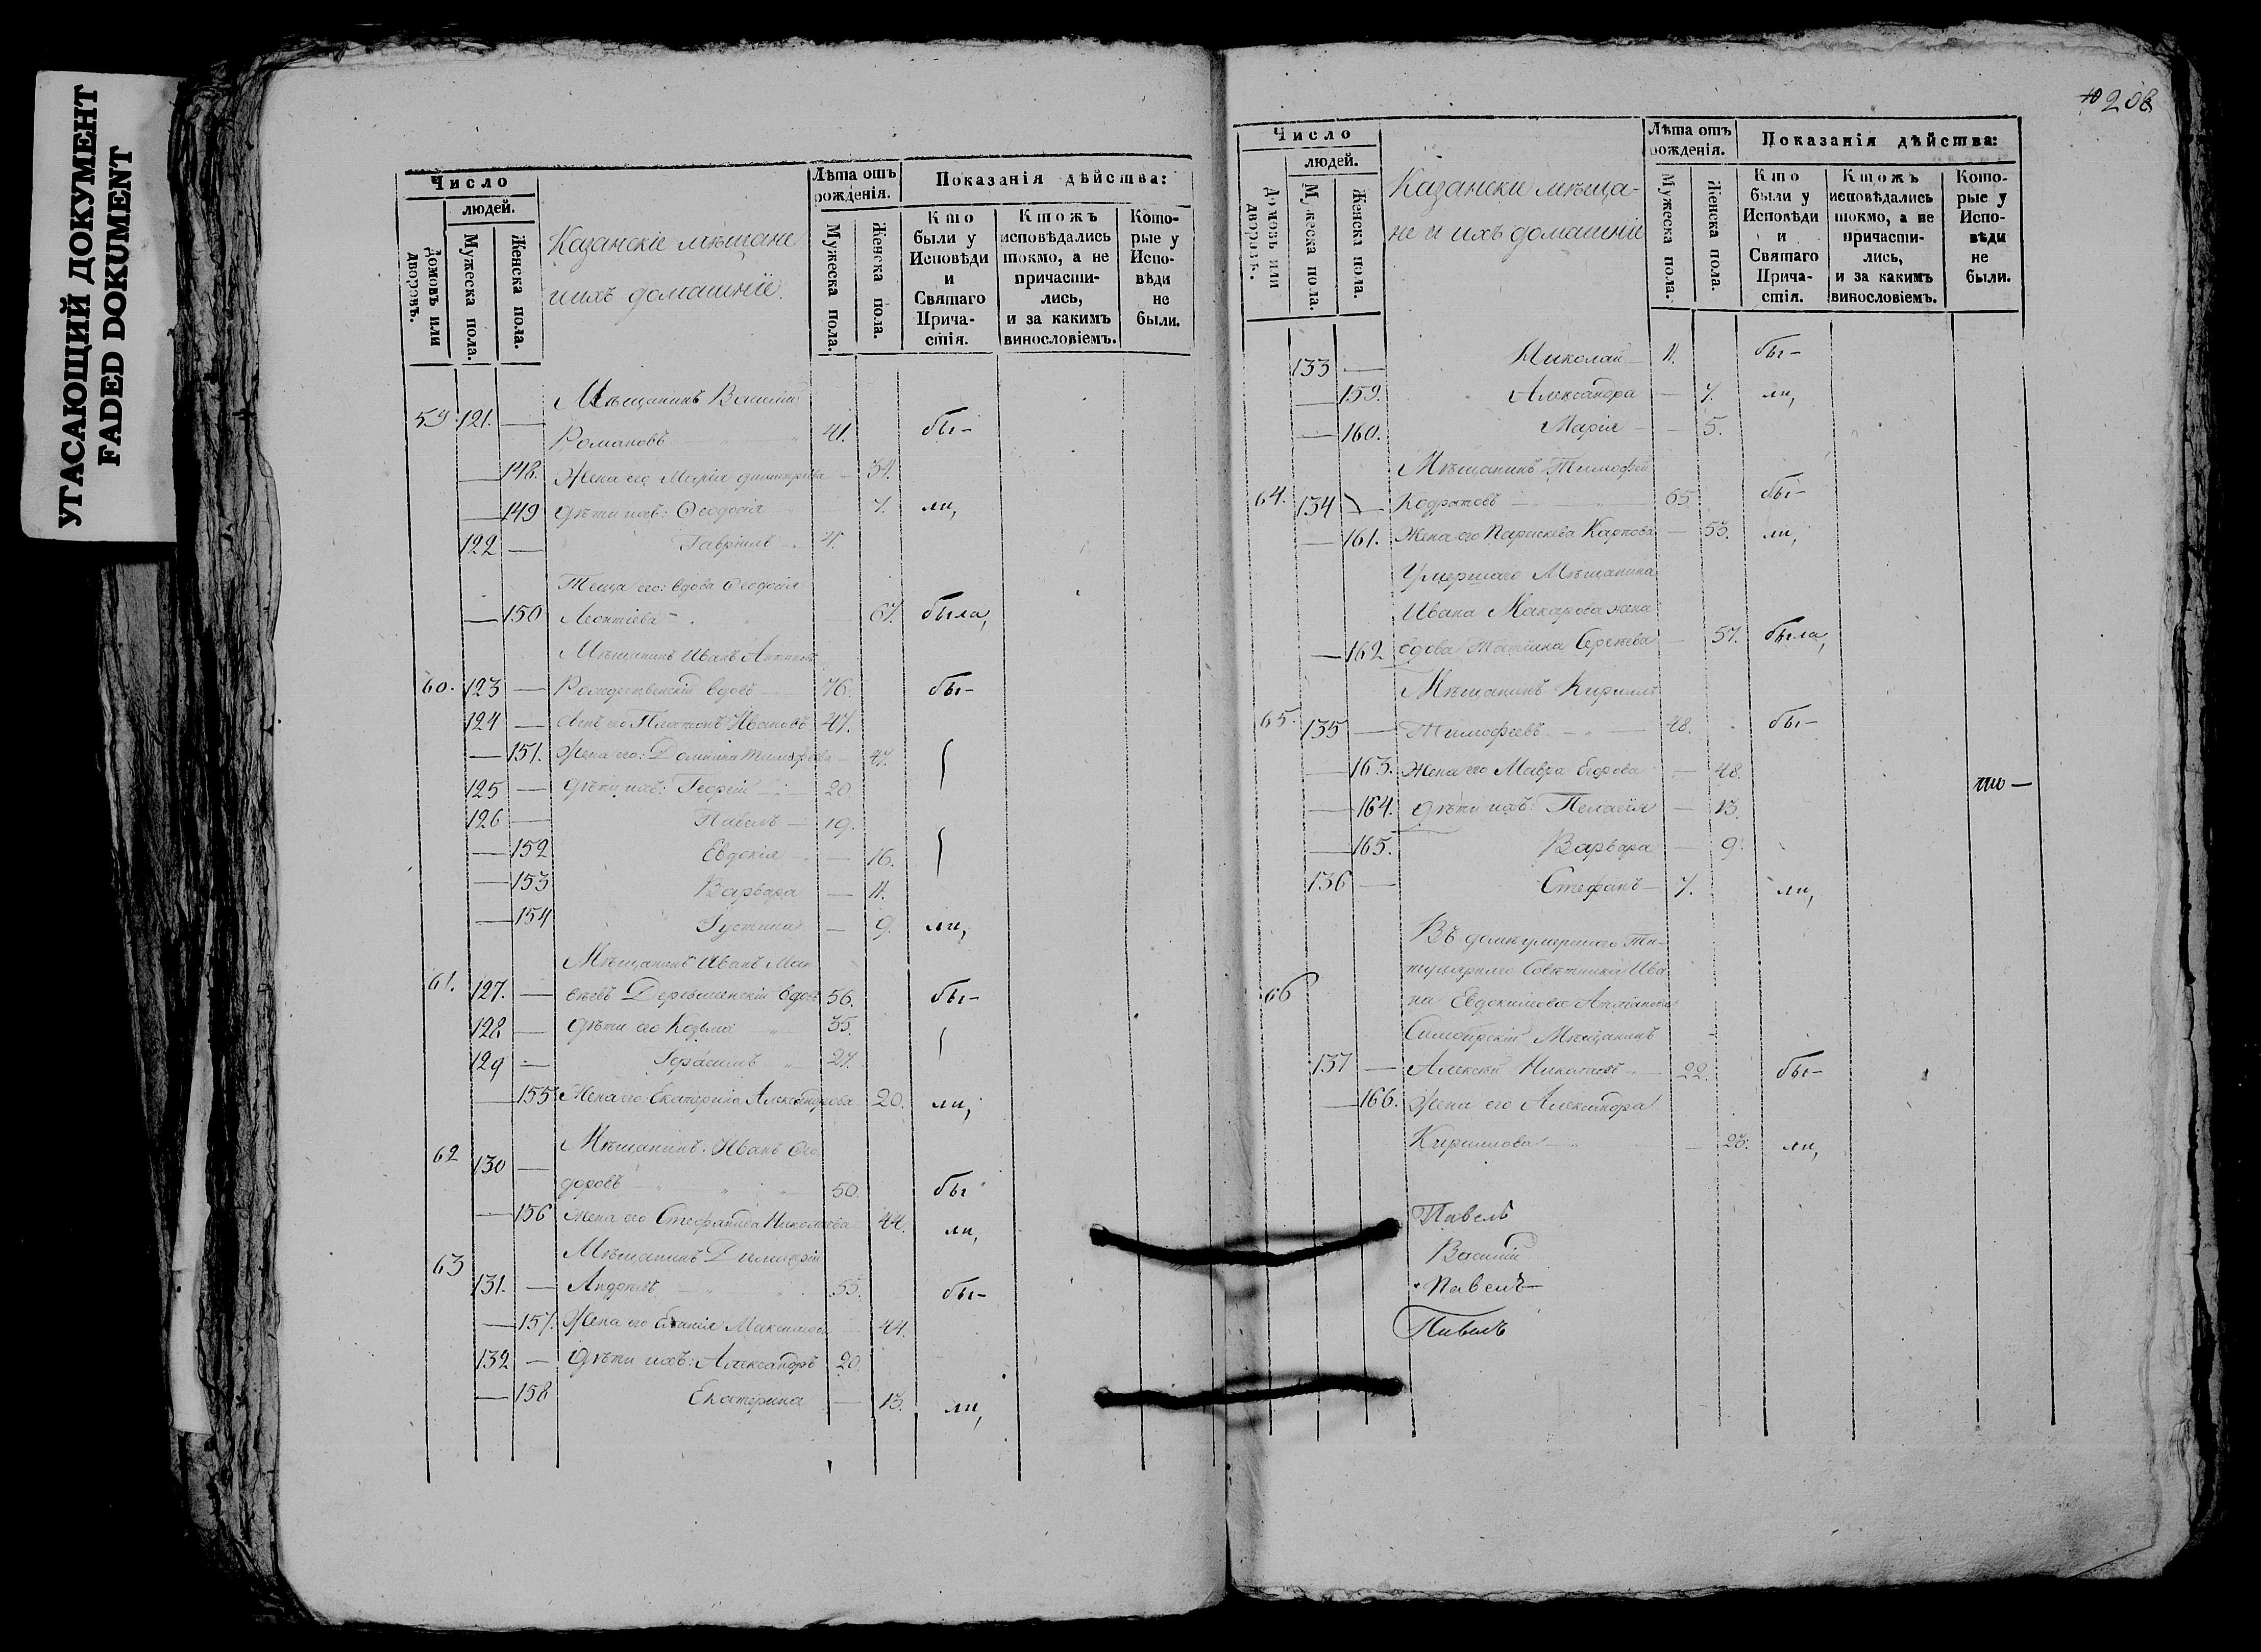 УГАСАЮЩИЙ ДОКУМЕНТ
FADED DOKUMENT
Число
людей.
Домовъ или дворовъ.
Мужеска пола.
Женска пола.
Казанскіе мѣщане
и ихъ домашніе.
Лѣта отъ рожденія.
Мужеска пола.
Женска пола.
Показанія дѣйства:
Кто были у Исповѣди и Святаго Причастія.
Ктожъ исповѣдались токмо, а не причастились, и за какимъ винословіемъ.
Которые у Исповѣди не были.
Мѣщанинъ Василій
59. 121. — Романовъ 41. бы-
— 148. Жена его Марія Димитріева — 34.
— 149 Дѣти ихъ: Ѳеодосія 7. ли,
122 — Гавріилъ 4.
Теща его: вдова Ѳеодосія
— 150 Леонтіева 67. была,
Мѣщанинъ Иванъ Антиповъ
60. 123 — Рождественскій вдовъ 76. бы-
124 — Сынъ его Платонъ Ивановъ 47.
— 151. Жена его: Домника Тимофеева 47.
125 — Дѣти ихъ: Георгій 20
126 — Павелъ 19.
— 152 Евдокія — 16.
— 153 Варвара — 11.
— 154 Іустина — 9. ли,
Мѣщанинъ Иванъ Мат
61. 127. — вѣевъ вдовъ 56. бы-
128 — Дѣти его Козьма 35.
129 — Герасимъ 27.
— 155 Жена его: Екатерина Александрова 20. ли,
Мѣщанинъ: Иванъ Ѳео
62 130 — доровъ 50. бы
— 156 Жена его Стефанида Николаева 44. ли,
Мѣщанинъ Димитрій
63 131. — 55. бы-
— 157. Жена его Максимова 44.
132 — Дѣти ихъ: Александръ 20.
— 158 Екатерина — 13. ли,
208
Число
людей.
Домовъ или дворовъ.
Мужеска пола.
Женска пола.
Казанскіе мѣща-
не и ихъ домашніе
Лѣта отъ рожденія.
Мужеска пола.
Женска пола.
Показанія дѣйства:
Кто были у Исповѣди и Святаго Причастія.
Ктожъ исповѣдались токмо, а не причастились, и за какимъ винословіемъ.
Которые у Исповѣди не были.
133 — Николай 11. бы-
— 159. Александра — 7. ли,
— 160. Марія — 5.
Мѣщанинъ Тимофей
64. 134 — Кодратовъ 65. бы-
— 161. Жена его Параскева Карпова — 53. ли,
Умершаго Мѣщанина
Ивана Макарова жена
— 162 вдова Татіана Сергѣева — 57. была,
Мѣщанинъ Кириллъ
65. 135 — Тимофеевъ 48. бы-
— 163. Жена его Мавра Егорова — 48. то —
— 164. Дѣти ихъ: Пелагія — 13.
— 165. Варвара — 9.
136 — Стефанъ 7. ли,
Въ домѣ умершаго Ти-
тулярнаго Совѣтника Ива
66 на Евдокимова
Симбирскій Мѣщанинъ
137 — Алексѣй 22. бы-
— 166. Жена его Александра
Кириллова — 23. ли,
Павелъ
Василій
Павелъ
Павелъ